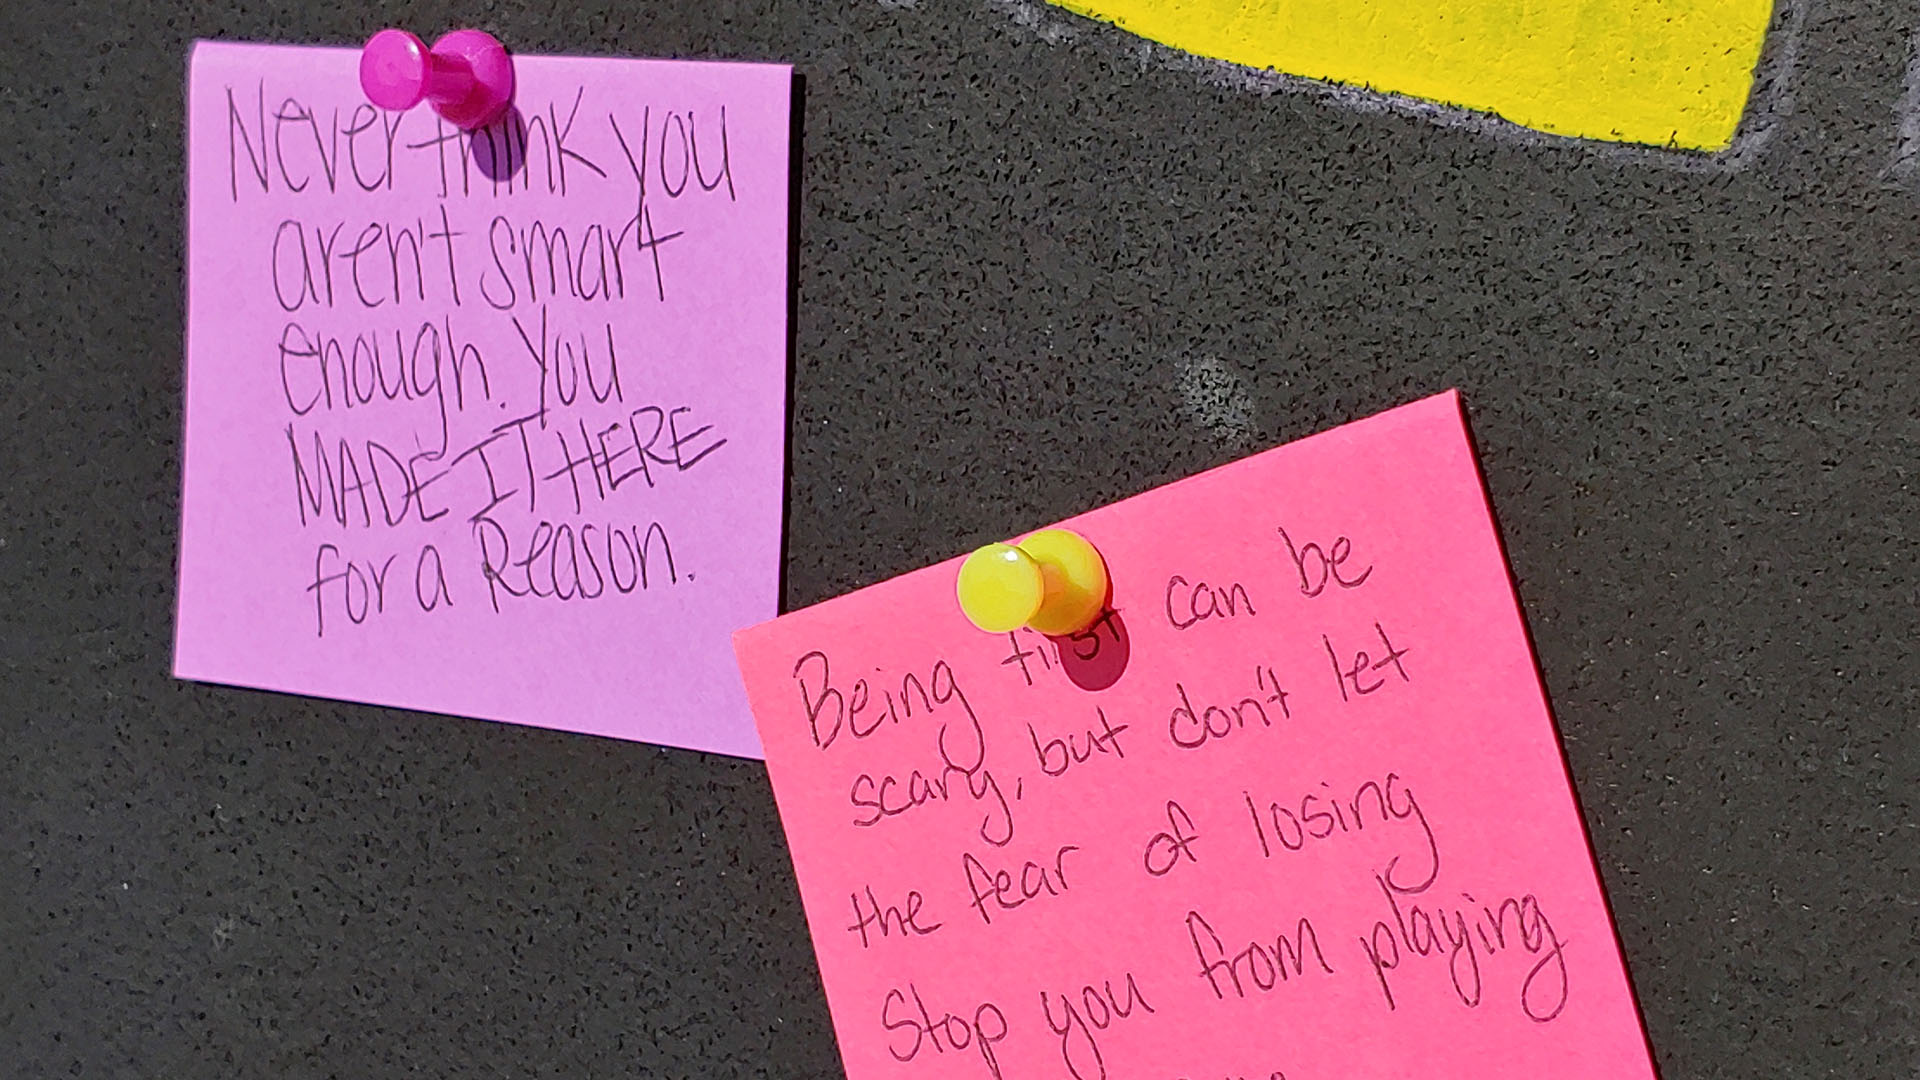 Never think you
aren't smart
enough. You
MADE IT HERE
for a Reason.
Being first can be
scary, but don't let
the fear of losing
Stop you from playing